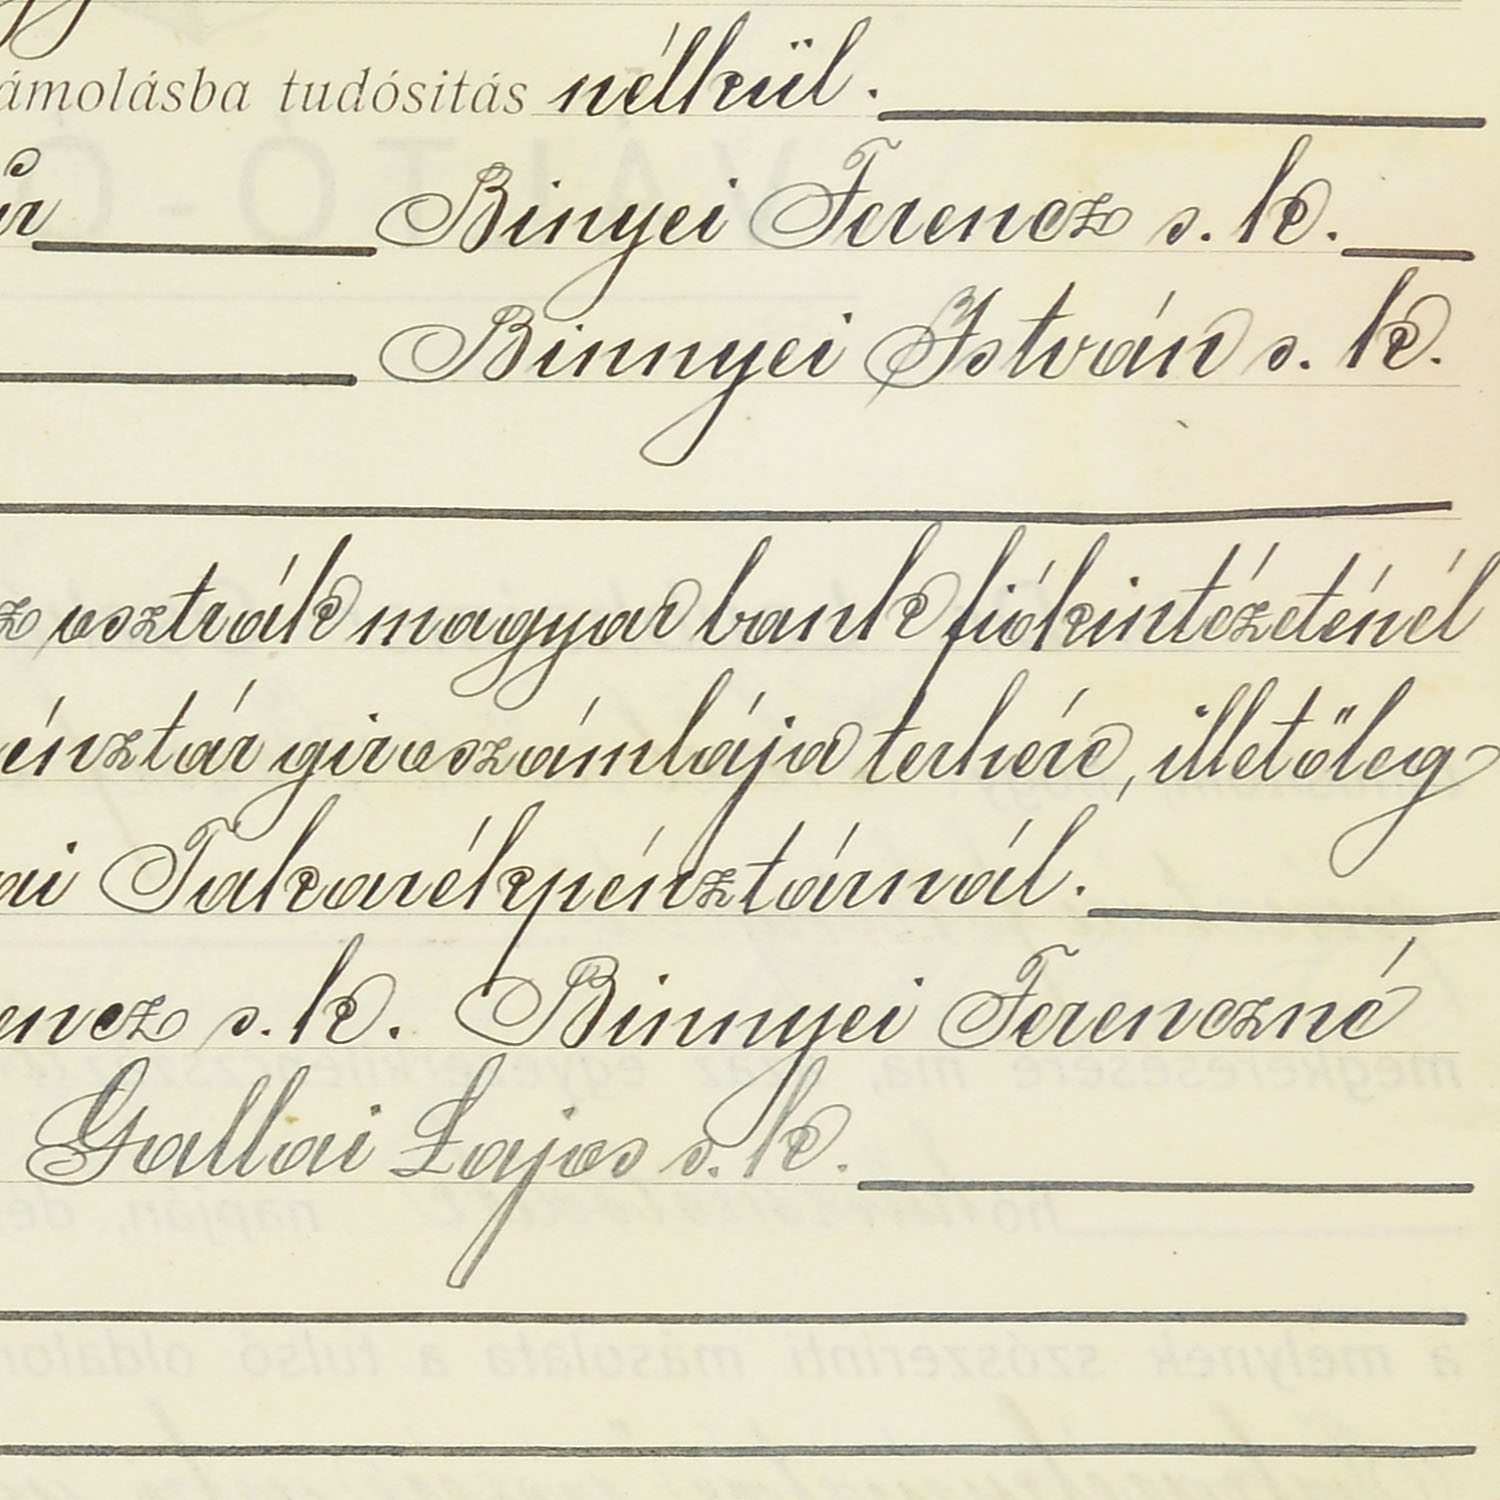 ámolásba tudósitás nélkül.
úr Binyei Ferencz s. k.
Binnyei István s. k.
z osztrák magyar bank fiókintézeténél
énztár giroszámlája terhére, illetőleg
ai Takarékpénztárnál.
encz s. k. Binnyei Ferenczné
Gallai Lajos s. k.